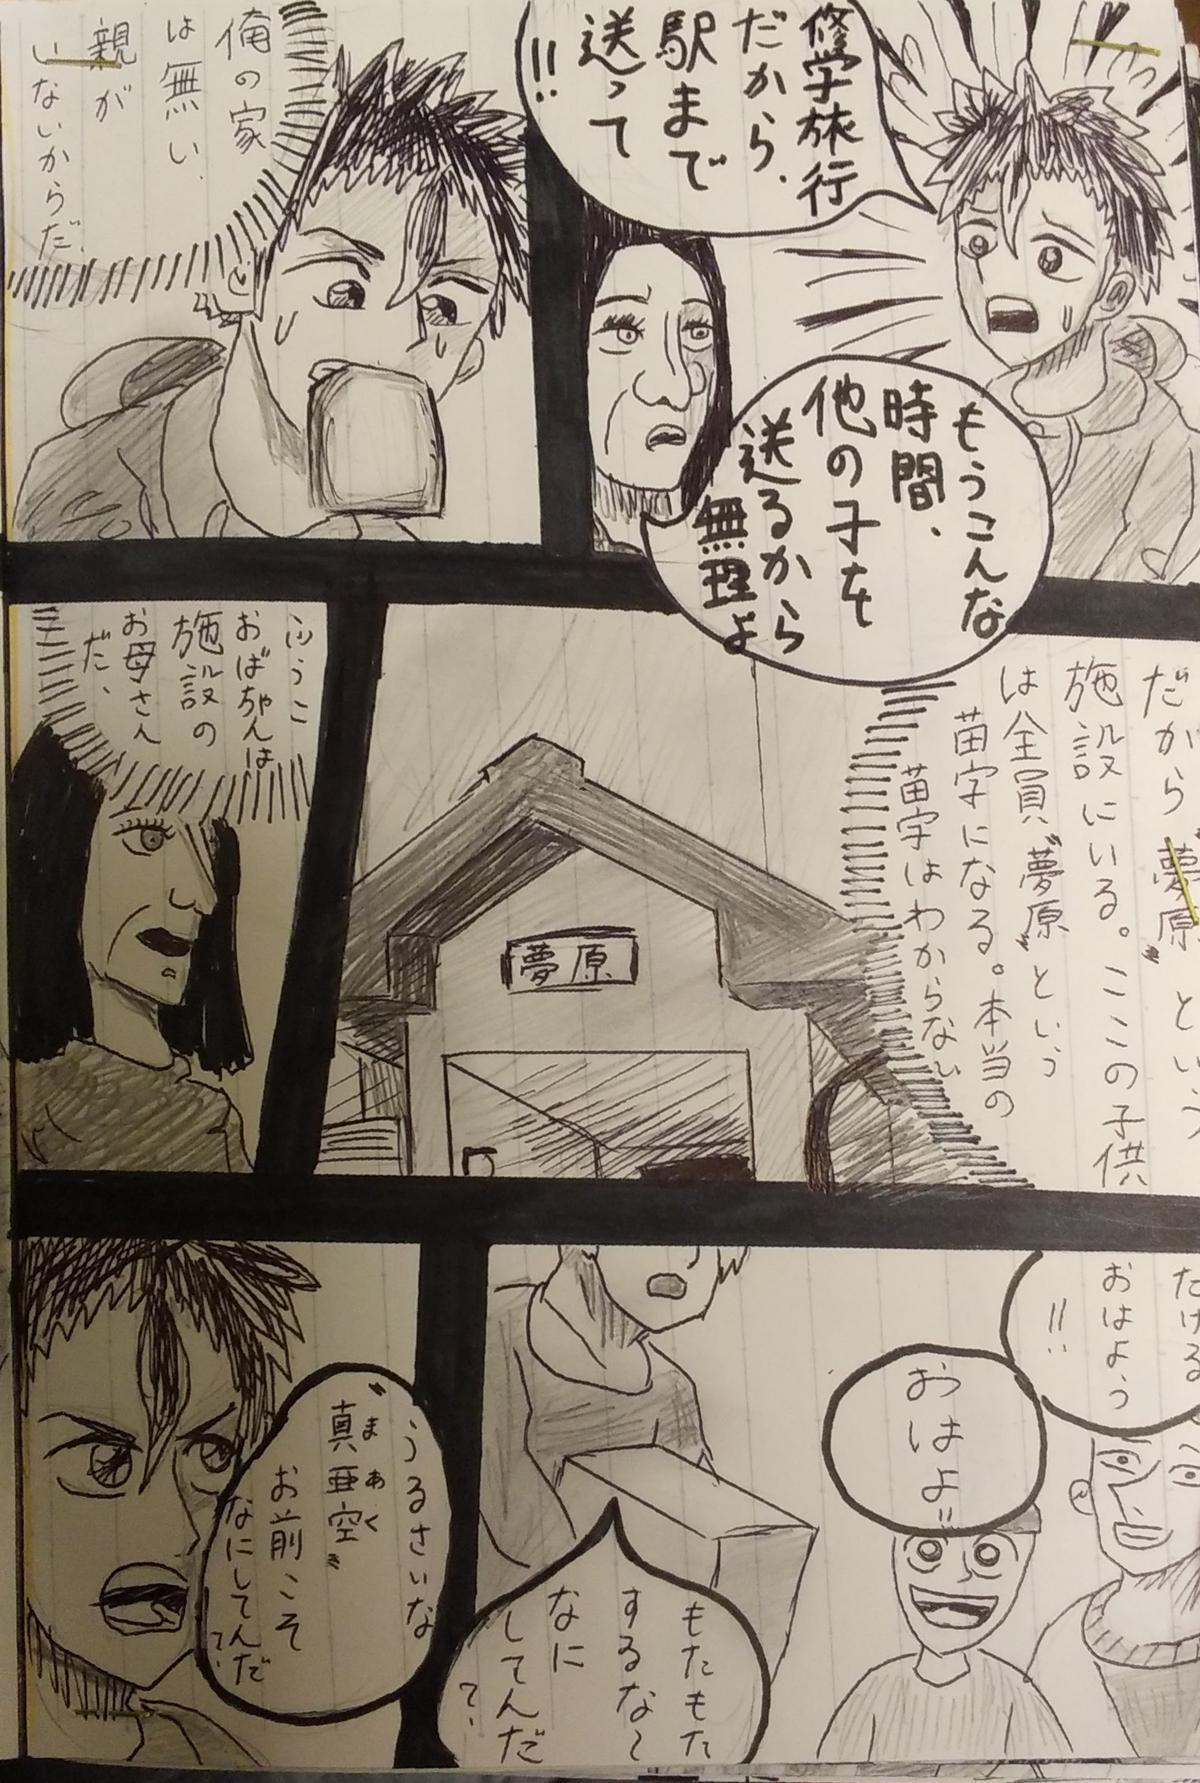 修学旅行
だから、
駅まで
送って
!!
もうこんな
時間、
他の子を
送るから
無理よ
俺の家
は無い、
親が
いないからだ、
だから"夢原"という
施設にいる。ここの子供
は全員"夢原"という
苗字になる。本当の
苗字はわからない
夢原
おばちゃんは
施設の
お母さん
だ、
たける
おはよう
!!
おはよ!!
もたもた
するな〜
なに
してんだ
?
うるさいな
"真亜空"
まあく
お前こそ
なにしてんだ
?